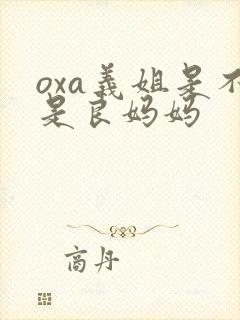 oxa義姐是不
是良妈妈
商丹